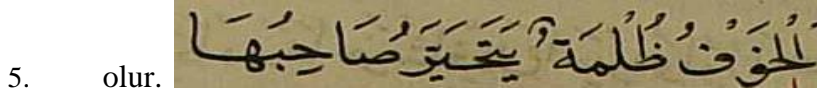 5. olur. اَلْخَوْفُ ظُلْمَةٌ يَتَحَيَّرُ صَاحِبُهَا